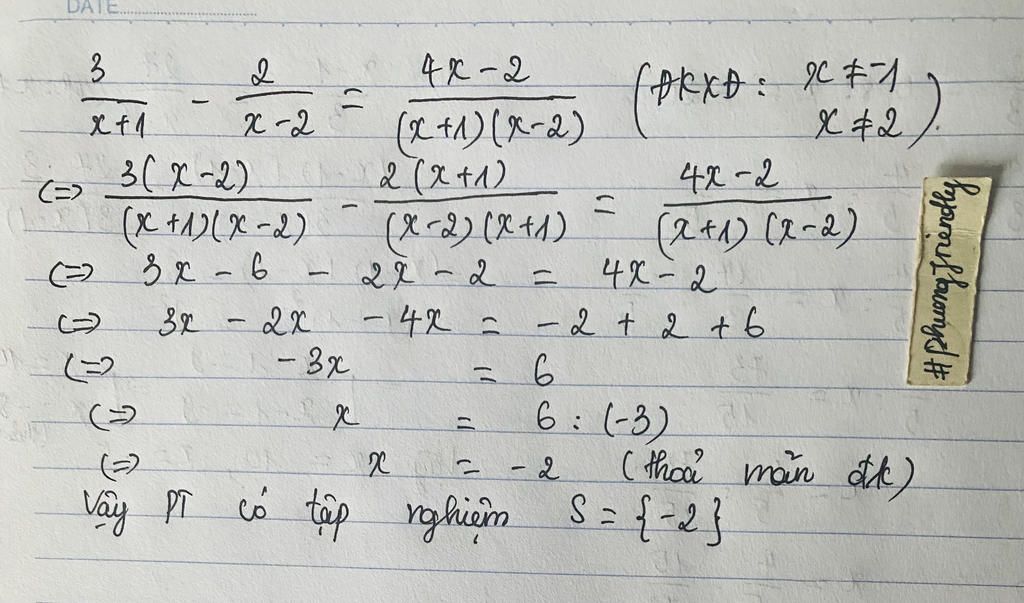 DATE
3/(x+1) - 2/(x-2) = (4x-2)/((x+1)(x-2)) (ĐKXĐ: x ≠ -1 x ≠ 2).
<=> 3(x-2)/((x+1)(x-2)) - 2(x+1)/((x-2)(x+1)) = (4x-2)/((x+1)(x-2))
<=> 3x - 6 - 2x - 2 = 4x - 2
<=> 3x - 2x - 4x = -2 + 2 + 6
<=> -3x = 6
<=> x = 6 : (-3)
<=> x = -2 (thoả mãn đk)
Vậy PT có tập nghiệm S = {-2}